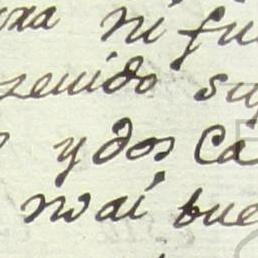 ni fu
zenido su
y dos Ca
no ai bue